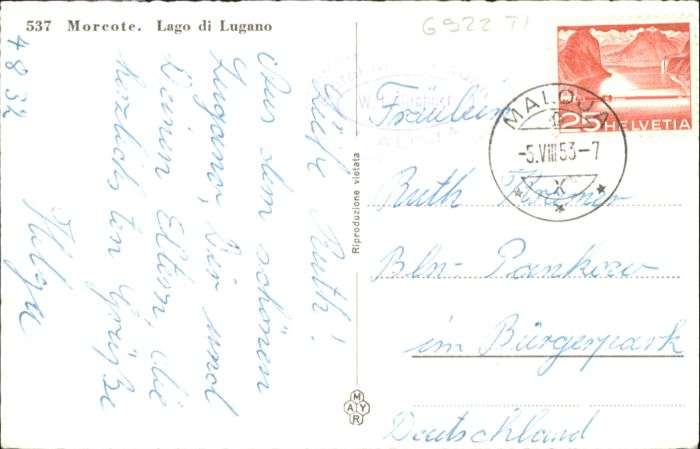 537 Morcote. Lago di Lugano
4 8 52
Liebe Ruth!
Aus dem schönen
Lugano, Dir und
Deinen Eltern, die
herzlichsten Grüße
Helga
Riproduzione vietata
MAYR
G922 TI
MALOJA
-5.VIII 53-7
25 HELVETIA
Fräulein
Ruth
Bln- Pankow
im Bürgerpark
Deutschland